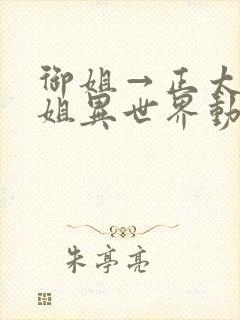 御姐→正太
姐異世界動
朱亭亮